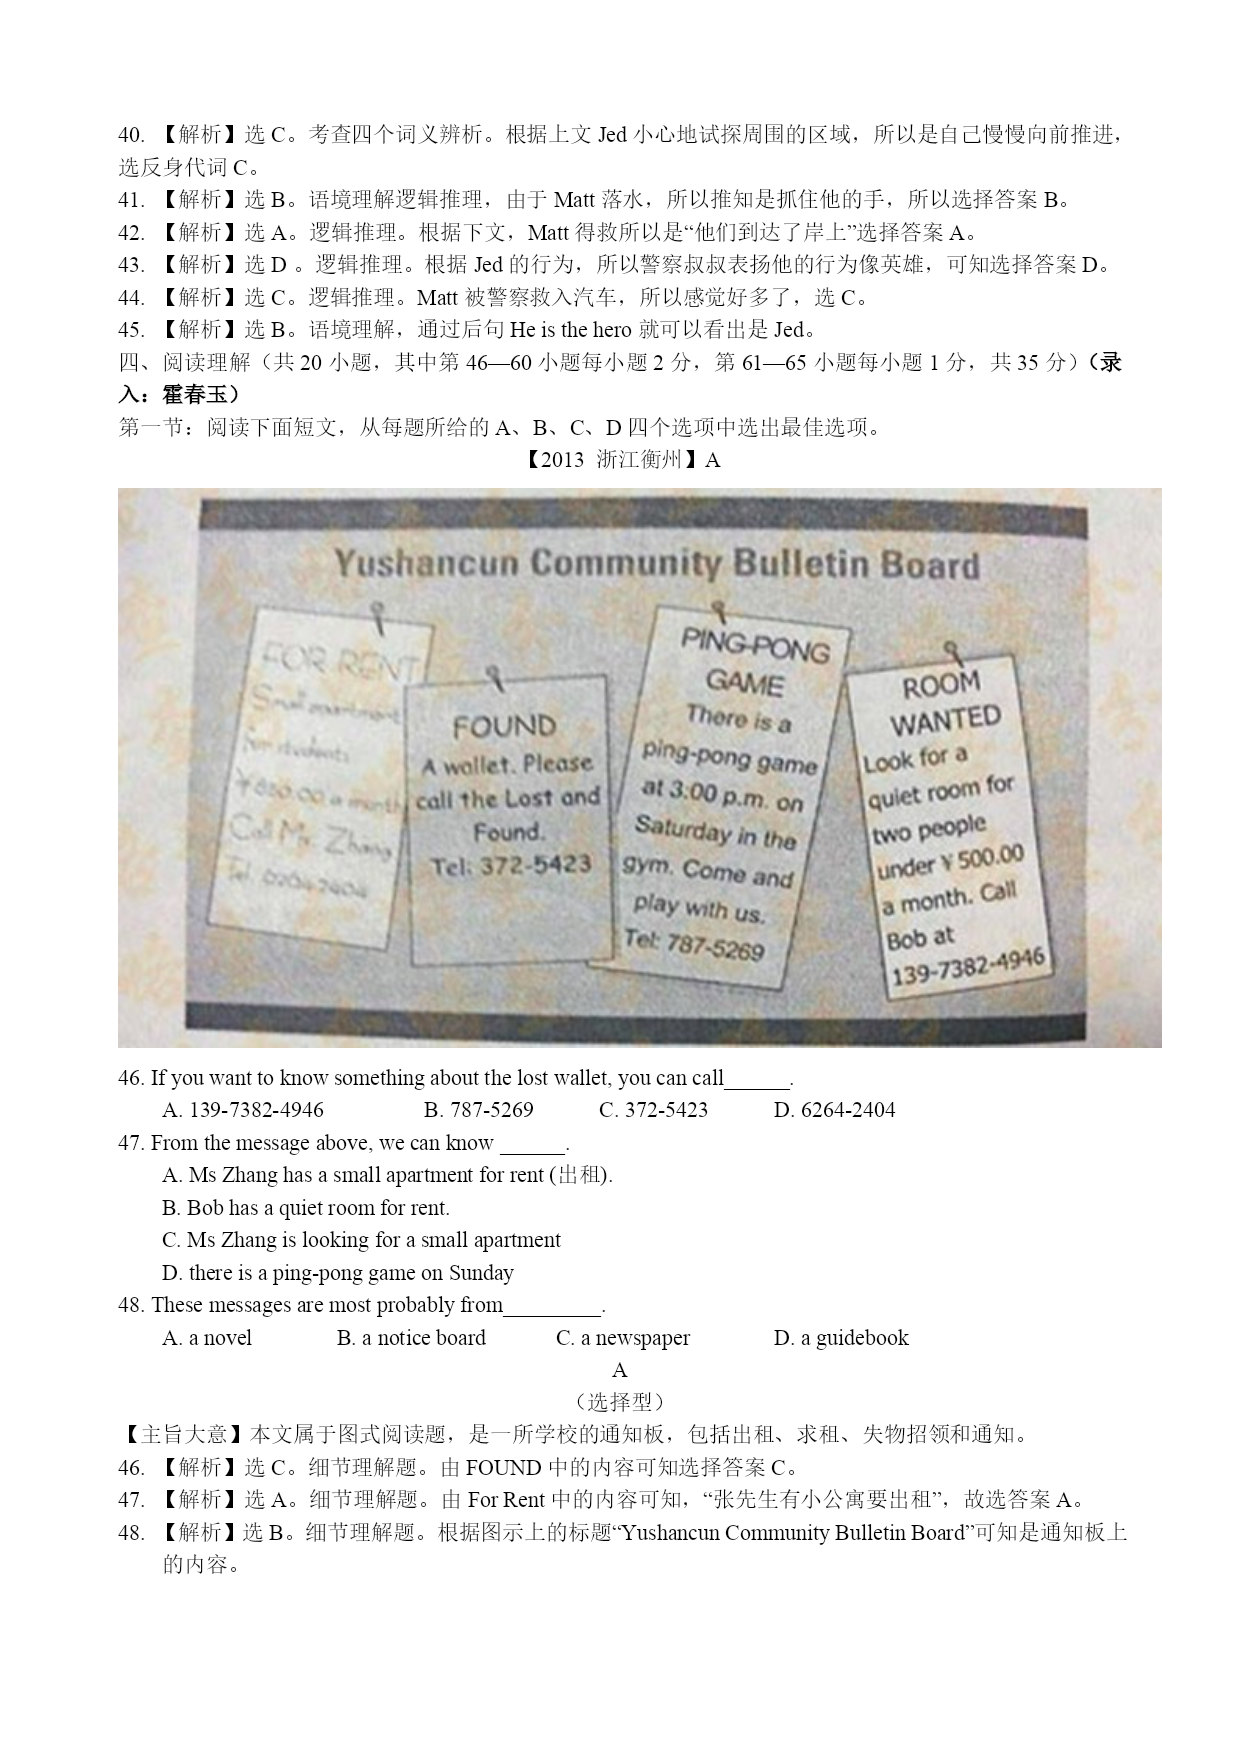 40. 【解析】选 C。考查四个词义辨析。根据上文 Jed 小心地试探周围的区域，所以是自己慢慢向前推进，
选反身代词 C。
41. 【解析】选 B。语境理解逻辑推理，由于 Matt 落水，所以推知是抓住他的手，所以选择答案 B。
42. 【解析】选 A。逻辑推理。根据下文，Matt 得救所以是“他们到达了岸上”选择答案 A。
43. 【解析】选 D 。逻辑推理。根据 Jed 的行为，所以警察叔叔表扬他的行为像英雄，可知选择答案 D。
44. 【解析】选 C。逻辑推理。Matt 被警察救入汽车，所以感觉好多了，选 C。
45. 【解析】选 B。语境理解，通过后句 He is the hero 就可以看出是 Jed。
四、阅读理解（共 20 小题，其中第 46—60 小题每小题 2 分，第 61—65 小题每小题 1 分，共 35 分）（录
入：霍春玉）
第一节：阅读下面短文，从每题所给的 A、B、C、D 四个选项中选出最佳选项。
【2013 浙江衢州】A
Yushancun Community Bulletin Board
FOR RENT
Small apartment
for students
a month
Call Ms. Zhang
FOUND
A wallet. Please
call the Lost and
Found.
Tel: 372-5423
PING-PONG
GAME
There is a
ping-pong game
at 3:00 p.m. on
Saturday in the
gym. Come and
play with us.
Tel: 787-5269
ROOM
WANTED
Look for a
quiet room for
two people
under ￥500.00
a month. Call
Bob at
139-7382-4946
46. If you want to know something about the lost wallet, you can call______.
A. 139-7382-4946 B. 787-5269 C. 372-5423 D. 6264-2404
47. From the message above, we can know ______.
A. Ms Zhang has a small apartment for rent (出租).
B. Bob has a quiet room for rent.
C. Ms Zhang is looking for a small apartment
D. there is a ping-pong game on Sunday
48. These messages are most probably from_________.
A. a novel B. a notice board C. a newspaper D. a guidebook
A
（选择型）
【主旨大意】本文属于图式阅读题，是一所学校的通知板，包括出租、求租、失物招领和通知。
46. 【解析】选 C。细节理解题。由 FOUND 中的内容可知选择答案 C。
47. 【解析】选 A。细节理解题。由 For Rent 中的内容可知，“张先生有小公寓要出租”，故选答案 A。
48. 【解析】选 B。细节理解题。根据图示上的标题“Yushancun Community Bulletin Board”可知是通知板上
的内容。